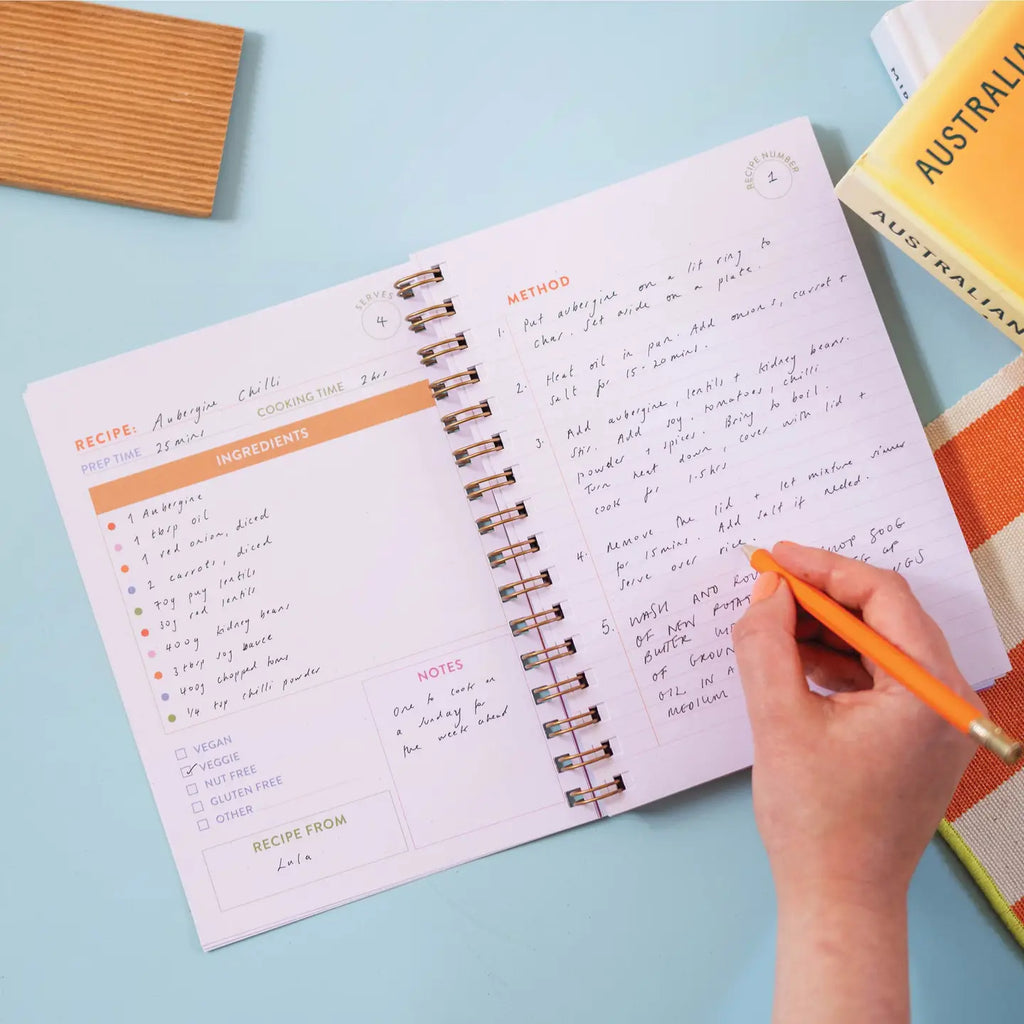 SERVES
4
RECIPE: Aubergine Chilli
PREP TIME 25mins COOKING TIME 2hrs
INGREDIENTS
1 Aubergine
1 tbsp oil
1 red onion, diced
2 carrots, diced
70g puy lentils
30g red lentils
400g kidney beans
3 tbsp soy sauce
400g chopped toms
1/4 tsp chilli powder
VEGAN
VEGGIE
NUT FREE
GLUTEN FREE
OTHER
NOTES
One to cook on
a Sunday for
the week ahead
RECIPE FROM
Lula
RECIPE NUMBER
1
METHOD
1. Put aubergine on a lit ring to
char. Set aside on a plate.
2. Heat oil in pan. Add onions, carrot +
salt for 15-20mins.
3. Add aubergine, lentils + kidney beans.
Stir. Add soy, tomatoes, chilli
powder + spices. Bring to boil.
Turn heat down, cover with lid +
cook for 1.5hrs
4. Remove the lid + let mixture simmer
for 15mins. Add salt if needed.
Serve over rice.
5. WASH AND 500G
OF NEW UP
BUTTER
OF
OIL IN A
MEDIUM
AUSTRALIA
AUSTRALIAN